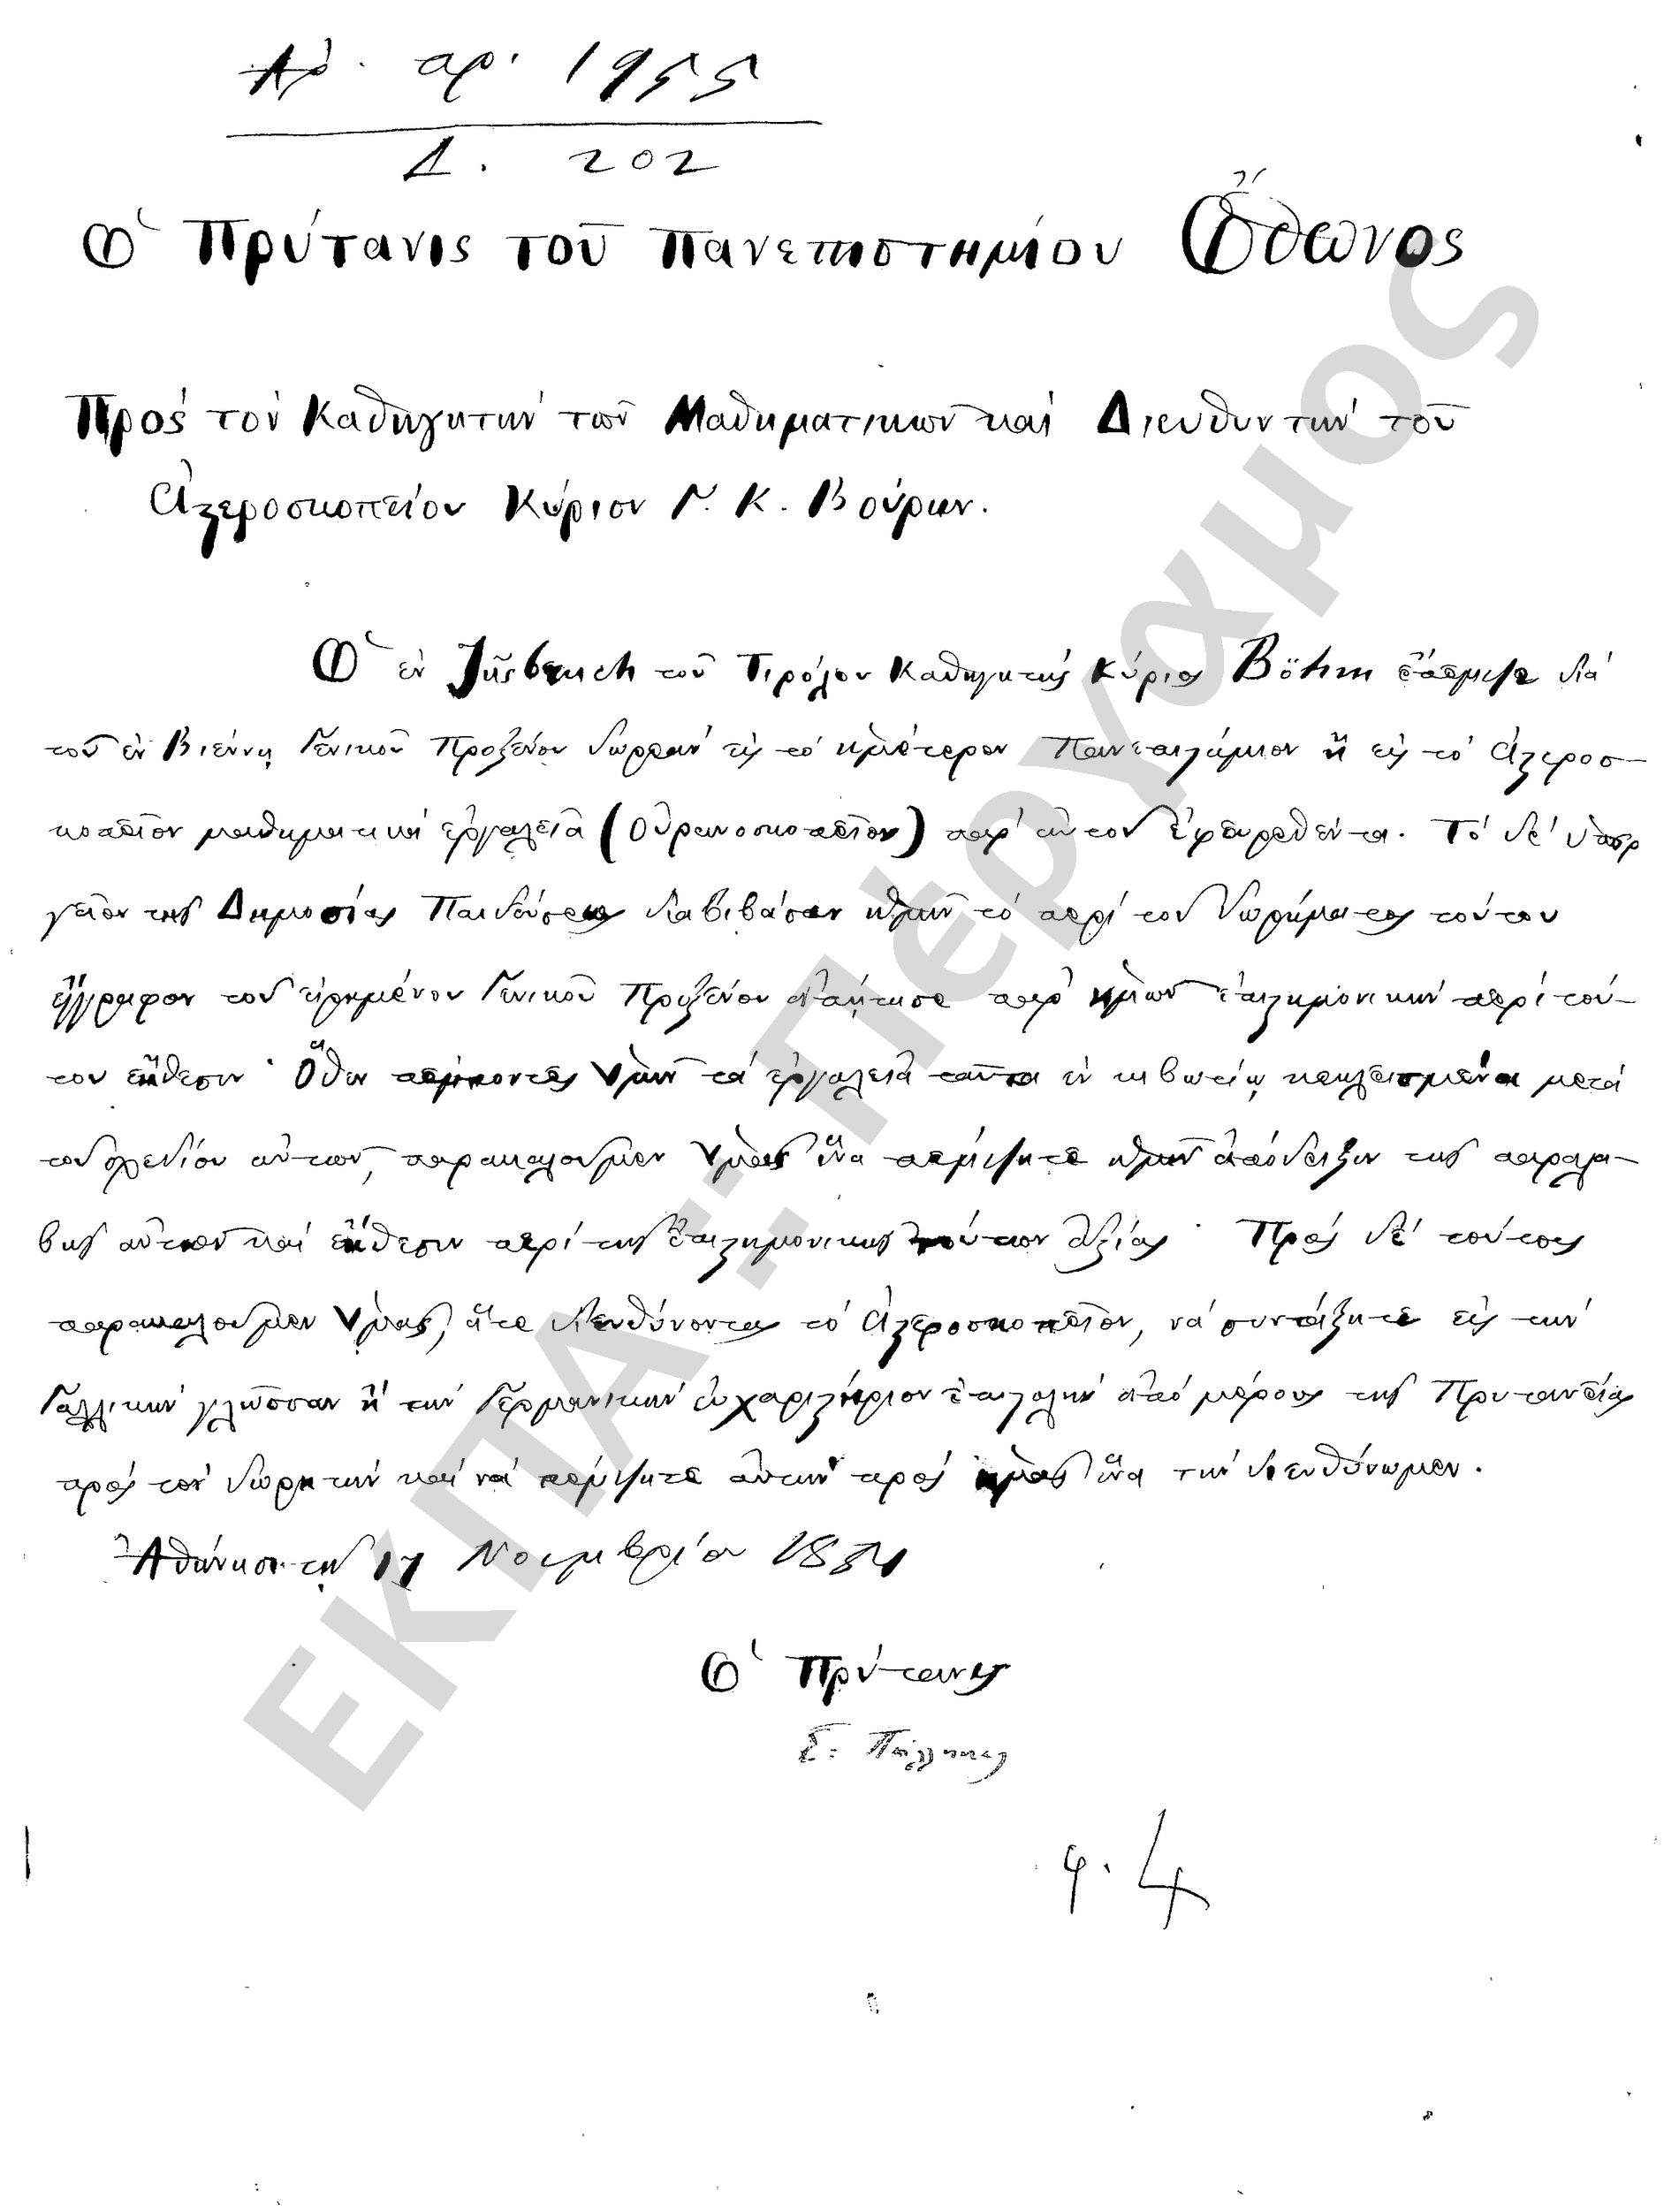 Ἀρ. αρ. 1955
Δ. 202
Ὁ Πρύτανις τοῦ Πανεπιστημίου Ὄθωνος
Πρὸς τὸν Καθηγητὴν τῶν Μαθηματικῶν καὶ Διευθυντὴν τοῦ
Ἀστεροσκοπείου Κύριον Γ. Κ. Βούρην.
Ὁ ἐν Jñsbruch τοῦ Τιρόλου Καθηγητὴς Κύριος Böhm ἔπεμψε διὰ
τοῦ ἐν Βιέννῃ Γενικοῦ Προξένου δωρεὰν εἰς τὸ ἡμέτερον Πανεπιστήμιον ἢ εἰς τὸ Ἀστεροσ-
κοπεῖον μαθηματικὰ ἐργαλεῖα (Οὐρανοσκοπεῖον) παρ' αὐτοῦ ἐφευρεθέντα. Τὸ δὲ Ὑπουρ
γεῖον τῆς Δημοσίας Παιδεύσεως διαβιβάσαν ἡμῖν τὸ περὶ τοῦ δωρήματος τούτου
ἔγγραφον τοῦ εἰρημένου Γενικοῦ Προξένου ἀπῄτησε παρ' ἡμῶν ἐπιστημονικὴν περὶ τού-
του ἔκθεσιν· Ὅθεν πέμποντες Ὑμῖν τὰ ἐργαλεῖα ταῦτα ἐν κιβωτίῳ κεκλεισμένα μετὰ
τοῦ σχεδίου αὐτῶν, παρακαλοῦμεν Ὑμᾶς ἵνα πέμψητε ἡμῖν ἀπόδειξιν τῆς παραλα-
βῆς αὐτῶν καὶ ἔκθεσιν περὶ τῆς ἐπιστημονικῆς τούτων ἀξίας· Πρὸς δὲ τούτοις
παρακαλοῦμεν Ὑμᾶς, ἅτε διευθύνοντας τὸ Ἀστεροσκοπεῖον, νὰ συντάξητε εἰς τὴν
Γαλλικὴν γλῶσσαν ἢ τὴν Γερμανικὴν εὐχαριστήριον ἐπιστολὴν ἀπὸ μέρους τῆς Πρυτανείας
πρὸς τὸν δωρητὴν καὶ νὰ πέμψητε αὐτὴν πρὸς ἡμᾶς ἵνα τὴν διευθύνωμεν.
Ἀθήνησι τῇ 17 Νοεμβρίου 1851
Ὁ Πρύτανις
Σ. Πήλληκας
φ. 4
ΕΚΠΑ:Πέργαμος